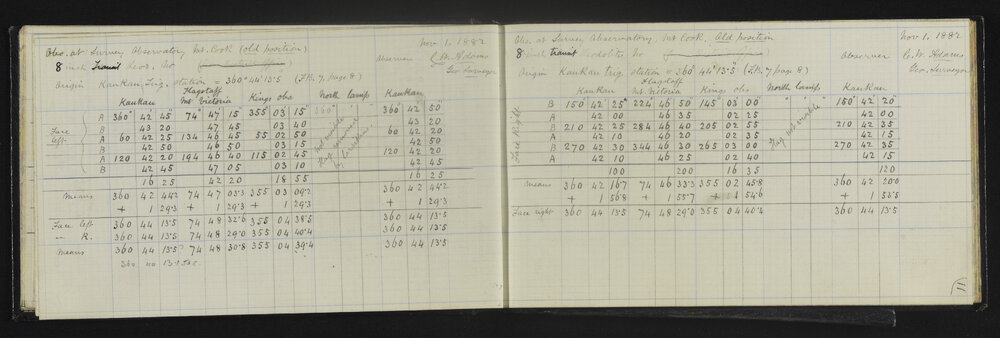 Obs. at Survey Observatory, Mt. Cook (old position)
Nov 1, 1882
8 inch Transit Theod. No
Observer C.W. Adams
Geo. Surveyor
Origin KauKau Trig. station = 360° 44' 13".5 (F.B. 7, page 8)
Flagstaff
KauKau Mt Victoria Kings obs North lamp KauKau
A 360° 42' 45" 74° 47' 15" 355° 03' 15" 360° 360° 42' 50"
B 43 20 47 45 03 40 43 20
Face left A 60 42 25 134 46 45 55 02 50 60 42 20
B 42 50 46 50 03 15 42 50
A 120 42 20 194 46 40 115 02 45 120 42 20
B 42 45 47 05 03 10 42 45
16 25 42 20 18 55 16 25
Means 360 42 44.2 74 47 03.3 355 03 09.2 360 42 44.2
+ 1 29.3 + 1 29.3 + 1 29.3 + 1 29.3
Face left 360 44 13.5 74 48 32.6 355 04 38.5 360 44 13.5
" R. 360 44 13.5 74 48 29.0 355 04 40.4 360 44 13.5
Means 360 44 13.5 74 48 30.8 355 04 39.4 360 44 13.5
Obs. at Survey Observatory, Mt Cook, Old position
Nov 1, 1882
8 inch transit Theodolite No
Observer C.W. Adams
Geo. Surveyor
Origin KauKau trig. station = 360° 44' 13".5 (F.B. 7, page 8)
Flagstaff
KauKau Mt. Victoria Kings obs North lamp KauKau
Face Right
B 150° 42' 25" 224° 46' 50" 145° 03' 00" 150° 42' 20"
A 42 00 46 35 02 25 42 00
B 210 42 25 284 46 40 205 02 55 210 42 35
A 42 10 46 20 02 35 42 15
B 270 42 30 344 46 30 265 03 00 270 42 35
A 42 10 46 25 02 40 42 15
100 200 16 35 120
Means 360 42 16.7 74 46 33.3 355 02 45.8 360 42 20.0
+ 1 56.8 + 1 55.7 + 1 54.6 + 1 53.5
Face right 360 44 13.5 74 48 29.0 355 04 40.4 360 44 13.5
11